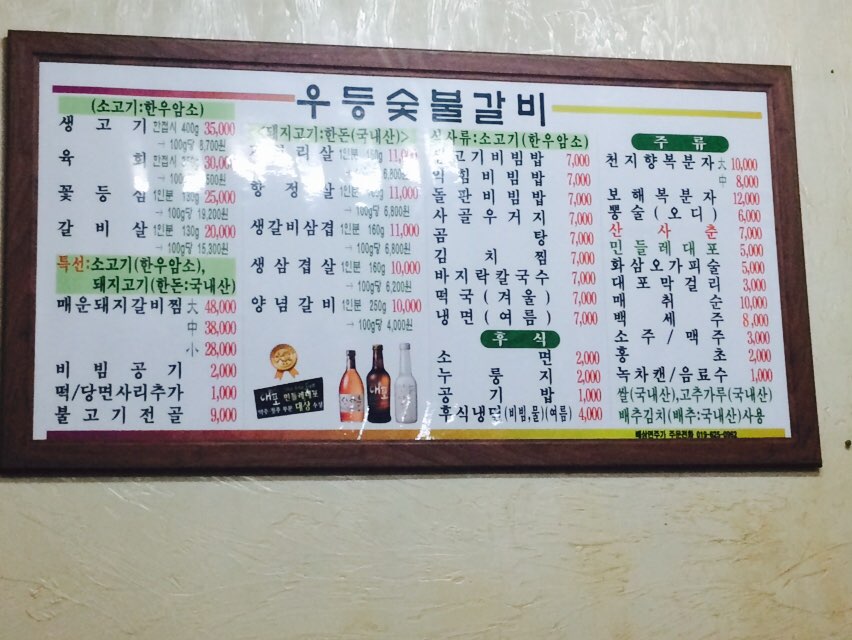 우등숯불갈비
(소고기:한우암소)
생고기 한접시 400g 35,000
→ 100g당 8,700원
육회 한접시 30,000
꽃등심 1인분 130g 25,000
→ 100g당 19,200원
갈비살 1인분 130g 20,000
→ 100g당 15,300원
특선:소고기(한우암소),
돼지고기(한돈:국내산)
매운돼지갈비찜 大 48,000
中 38,000
小 28,000
비빔공기 2,000
떡/당면사리추가 1,000
불고기전골 9,000
<돼지고기:한돈(국내산)>
1인분 160g 11,000
→ 6,800원
항정살 1인분 11,000
→ 100g당 6,800원
생갈비삼겹 1인분 160g 11,000
→ 100g당 6,800원
생삼겹살 1인분 160g 10,000
→ 100g당 6,000원
양념갈비 1인분 250g 10,000
→ 100g당 4,000원
내포 민들레대포
대상 수상
내포
식사류:소고기(한우암소)
불고기비빔밥 7,000
익힘비빔밥 7,000
돌판비빔밥 7,000
사골우거지 7,000
곰탕 7,000
김치찜 7,000
바지락칼국수 7,000
떡국(겨울) 7,000
냉면(여름) 7,000
후식
소면 2,000
누룽지 2,000
공기밥 1,000
후식냉면(비빔,물)(여름) 4,000
주류
천지향복분자 大 10,000
中 8,000
보해복분자 12,000
뽕술(오디) 6,000
산사춘 7,000
민들레대포 5,000
화삼오가피술 5,000
대포막걸리 3,000
매취순 10,000
백세주 8,000
소주/맥주 3,000
홍초 2,000
녹차캔/음료수 1,000
쌀(국내산),고추가루(국내산)
배추김치(배추:국내산)사용